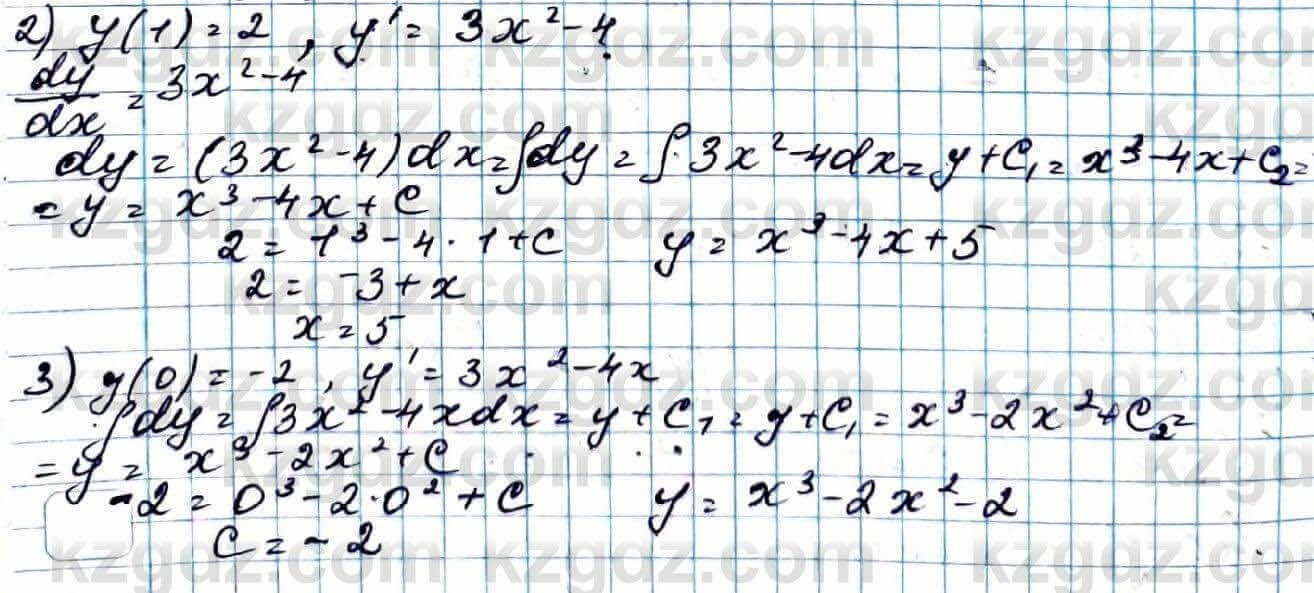 2) y(1) = 2 , y' = 3x² - 4
dy/dx = 3x² - 4
dy = (3x² - 4) dx = ∫dy = ∫ 3x² - 4dx = y + C₁ = x³ - 4x + C₂ =
= y = x³ - 4x + C
2 = 1³ - 4 · 1 + C y = x³ - 4x + 5
2 = -3 + x
x = 5
3) y(0) = -2 , y' = 3x² - 4x
∫dy = ∫3x² - 4xdx = y + C₁ = y + C₁ = x³ - 2x² + C₂ =
= y = x³ - 2x² + C
-2 = 0³ - 2·0² + C y = x³ - 2x² - 2
C = -2
kzgdz.com